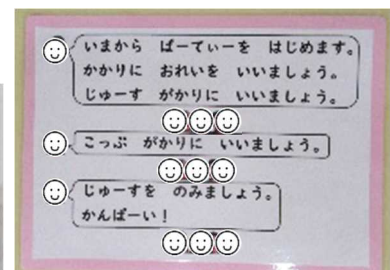 いまから ぱーてぃーを はじめます。
かかりに おれいを いいましょう。
じゅーす がかりに いいましょう。
こっぷ がかりに いいましょう。
じゅーすを のみましょう。
かんぱーい！